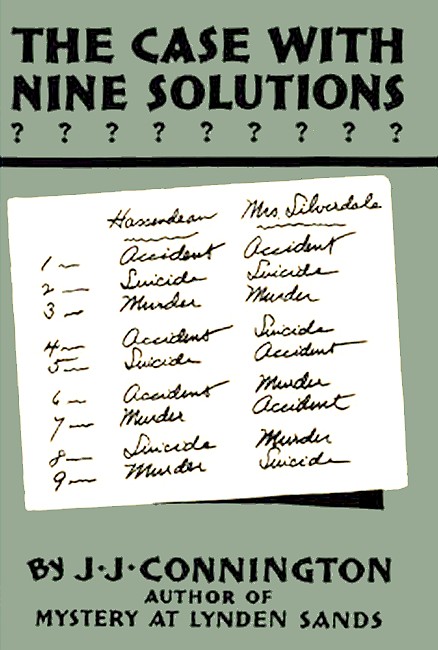 THE CASE WITH
NINE SOLUTIONS
? ? ? ? ? ? ? ? ?
Hassendean Mrs. Silverdale
1— Accident Accident
2— Suicide Suicide
3— Murder Murder
4— Accident Suicide
5— Suicide Accident
6— Accident Murder
7— Murder Accident
8— Suicide Murder
9— Murder Suicide
BY J·J·CONNINGTON
AUTHOR OF
MYSTERY AT LYNDEN SANDS